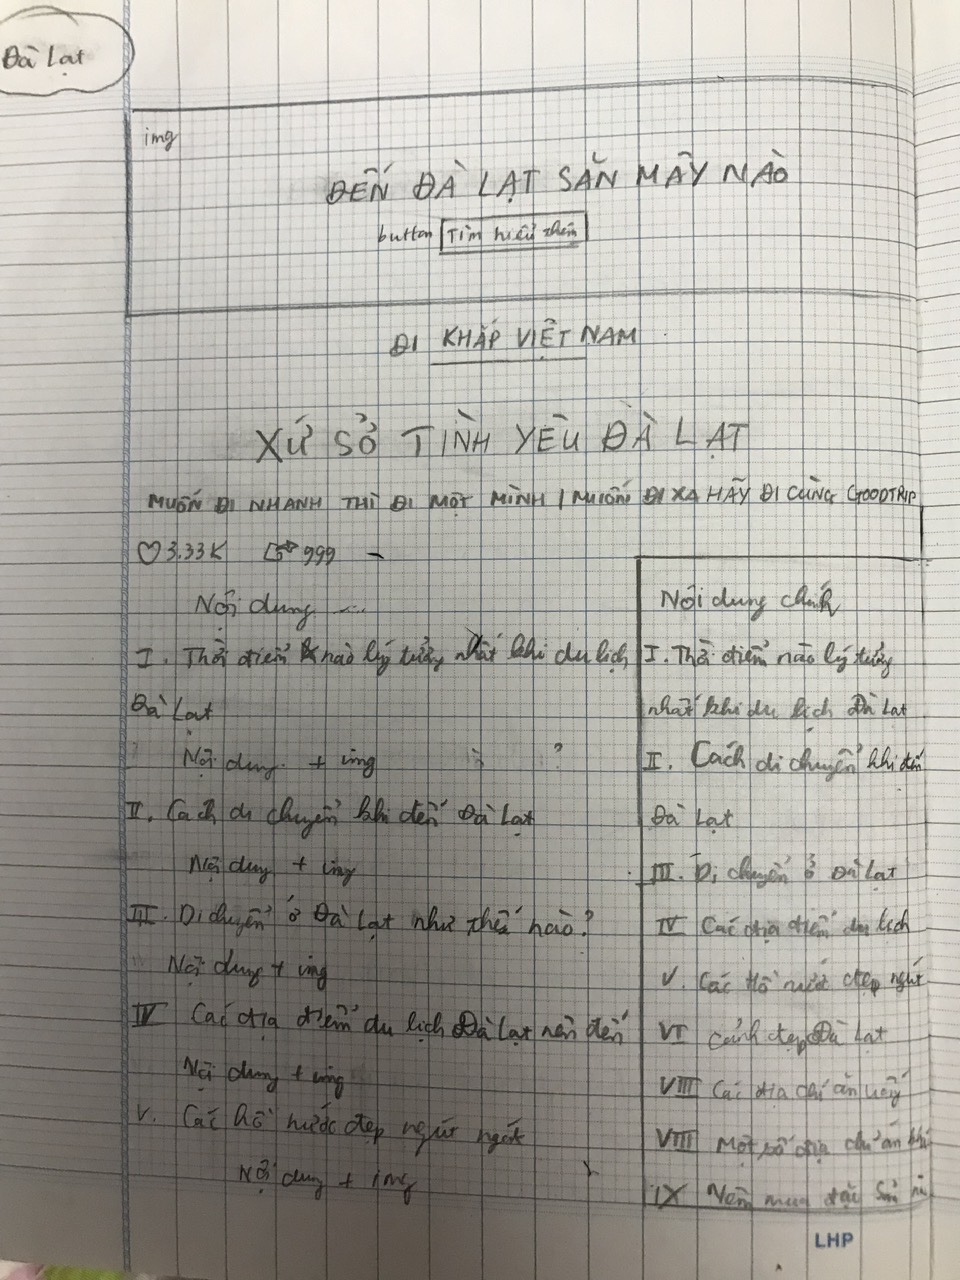 Đà Lạt
img
ĐẾN ĐÀ LẠT SĂN MÂY NÀO
button Tìm hiểu thêm
ĐI KHẮP VIỆT NAM
XỨ SỞ TÌNH YÊU ĐÀ LẠT
MUỐN ĐI NHANH THÌ ĐI MỘT MÌNH / MUỐN ĐI XA HÃY ĐI CÙNG GOODTRIP
3.33K 999
Nội dung ...
I. Thời điểm nào lý tưởng nhất khi du lịch
Đà Lạt
Nội dung + img
?
II. Cách di chuyển khi đến Đà Lạt
Nội dung + img
III. Di chuyển ở Đà Lạt như thế nào?
Nội dung + img
IV Các địa điểm du lịch Đà Lạt nên đến
Nội dung + img
V. Các hồ nước đẹp ngút ngát
Nội dung + img
Nội dung chính
I. Thời điểm nào lý tưởng
nhất khi du lịch Đà Lạt
II. Cách di chuyển khi đến
Đà Lạt
III. Di chuyển ở Đà Lạt
IV Các địa điểm du lịch
V. Các hồ nước đẹp ngút
VI Cảnh đẹp Đà Lạt
VIII Các địa chỉ ăn uống
VIII Một số địa chỉ ăn
IX Nên mua đặc sản
LHP